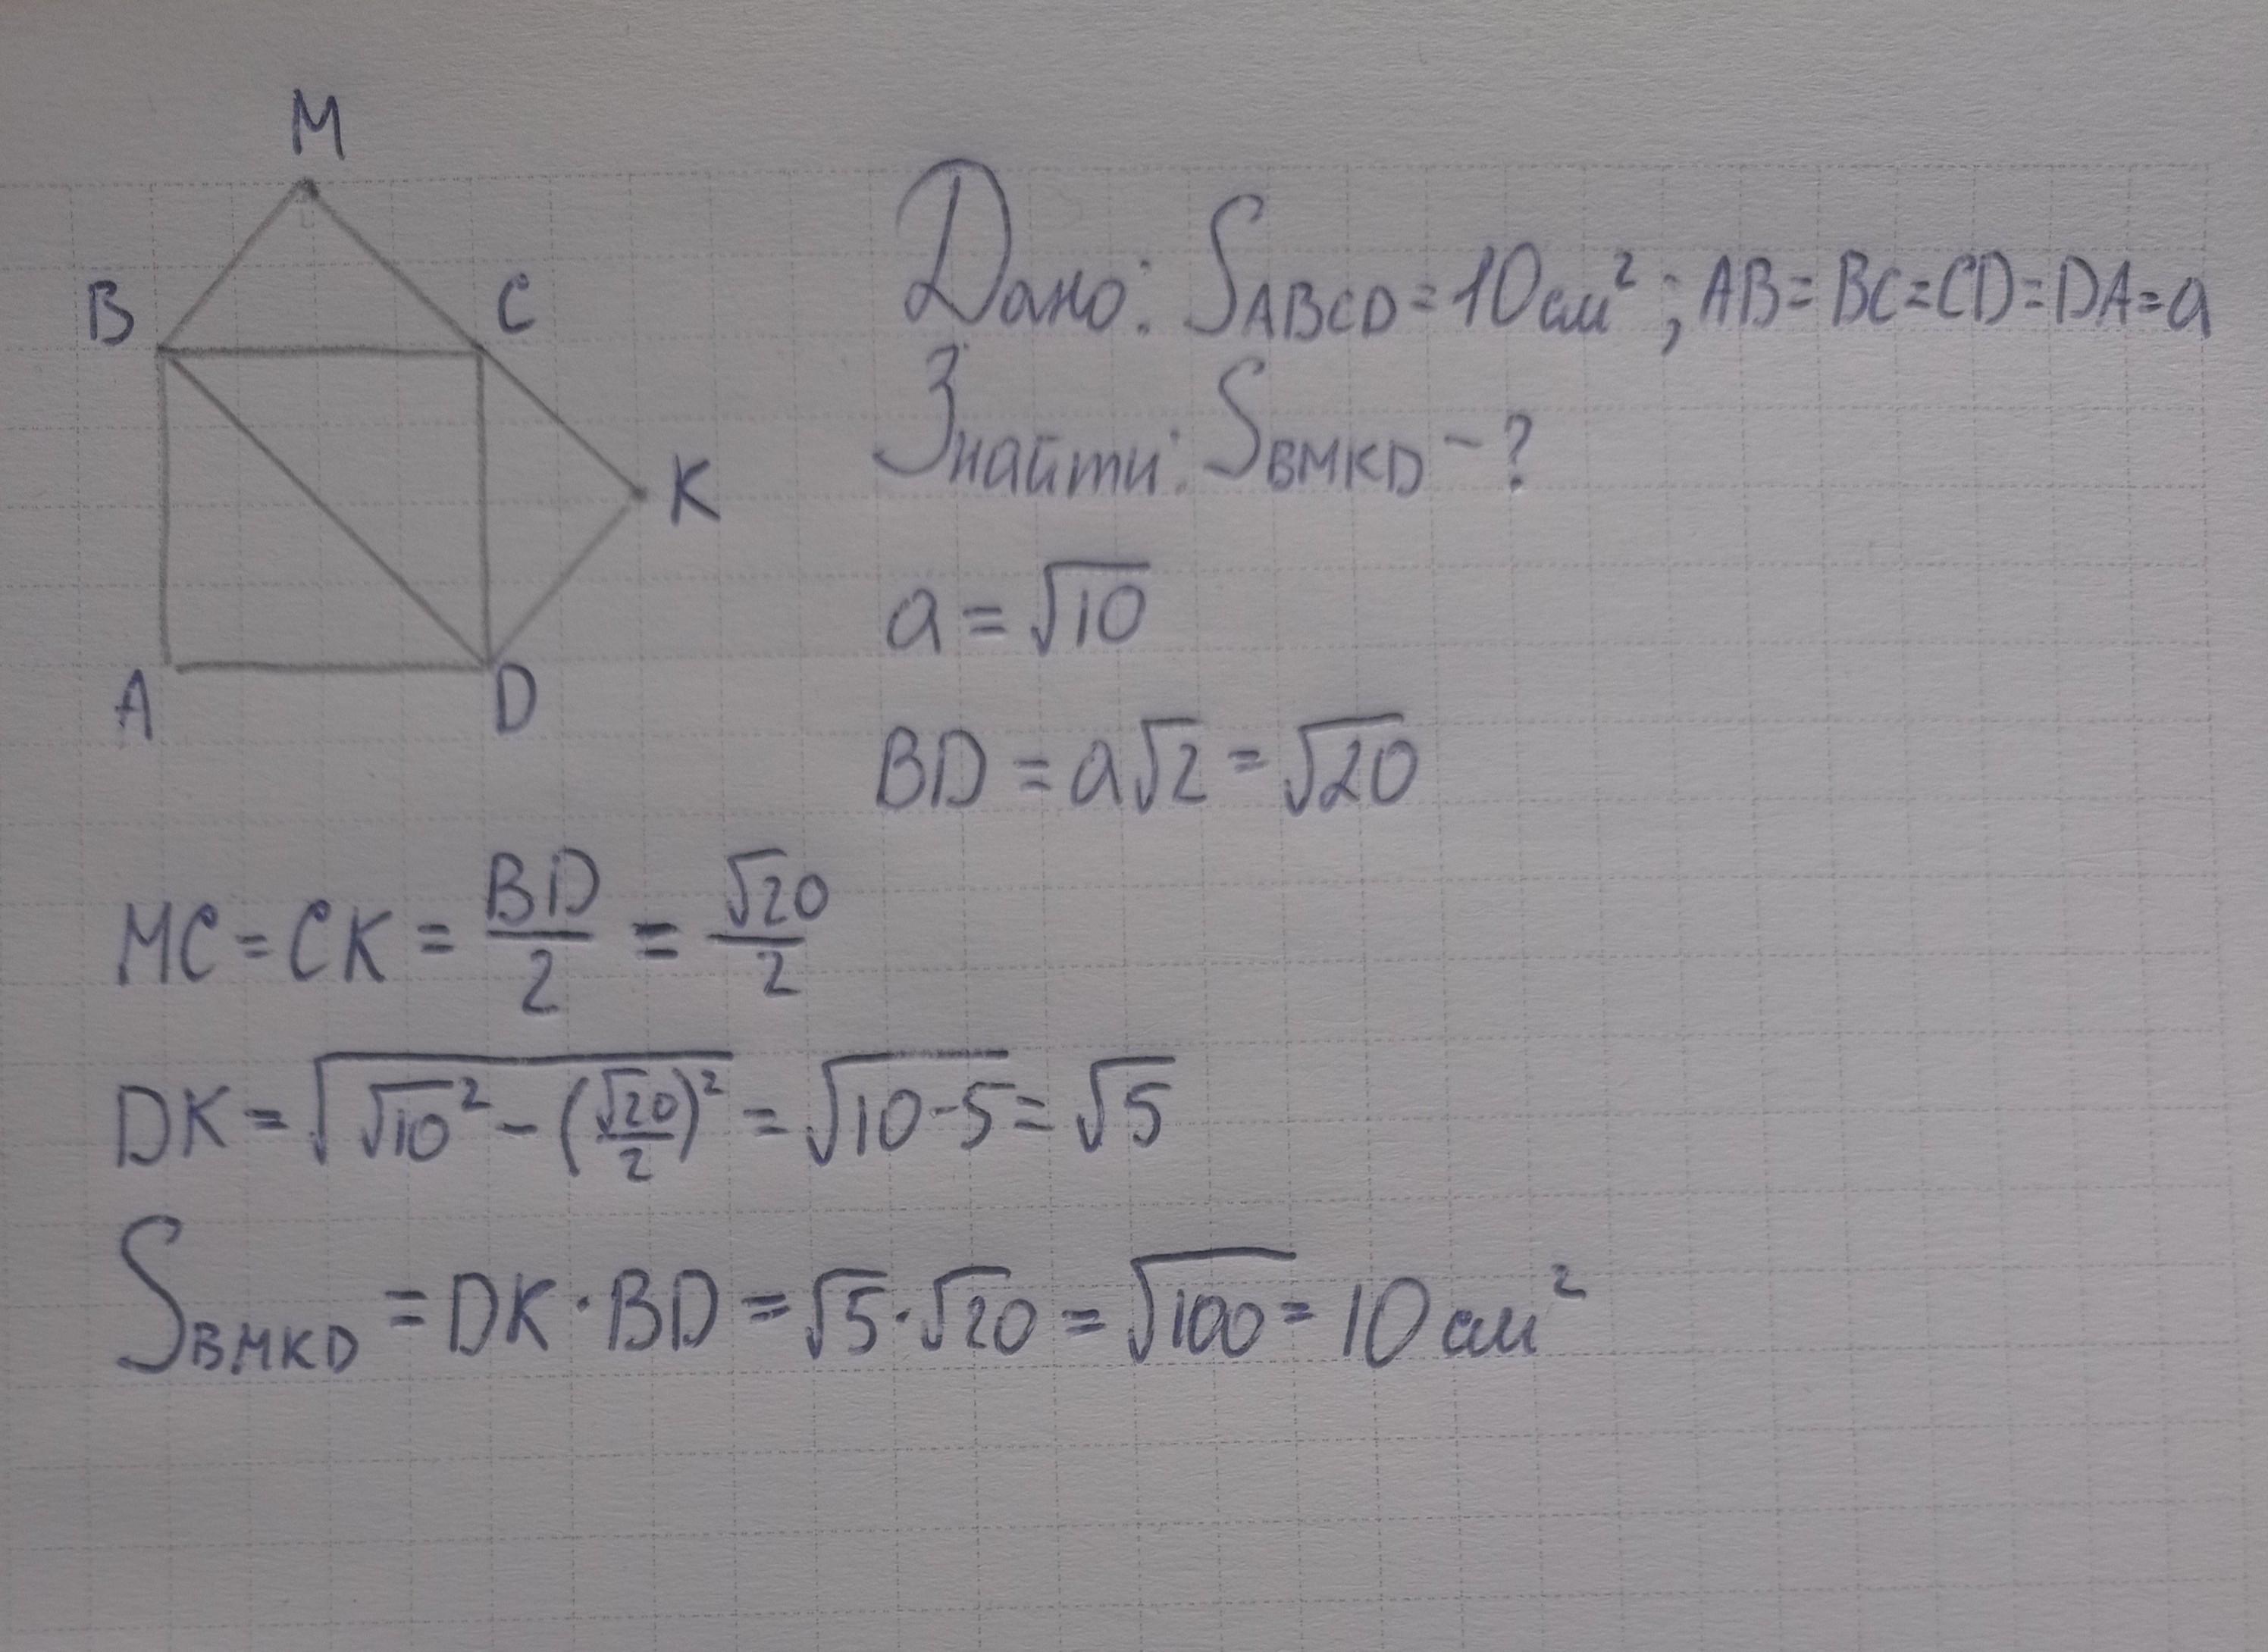 M
B
C
K
A
D
Дано: S_ABCD = 10 см²; AB = BC = CD = DA = a
Знайти: S_BMKD - ?
a = √10
BD = a√2 = √20
MC = CK = BD/2 = √20/2
DK = √(√10² - (√20/2)²) = √(10-5) = √5
S_BMKD = DK · BD = √5 · √20 = √100 = 10 см²